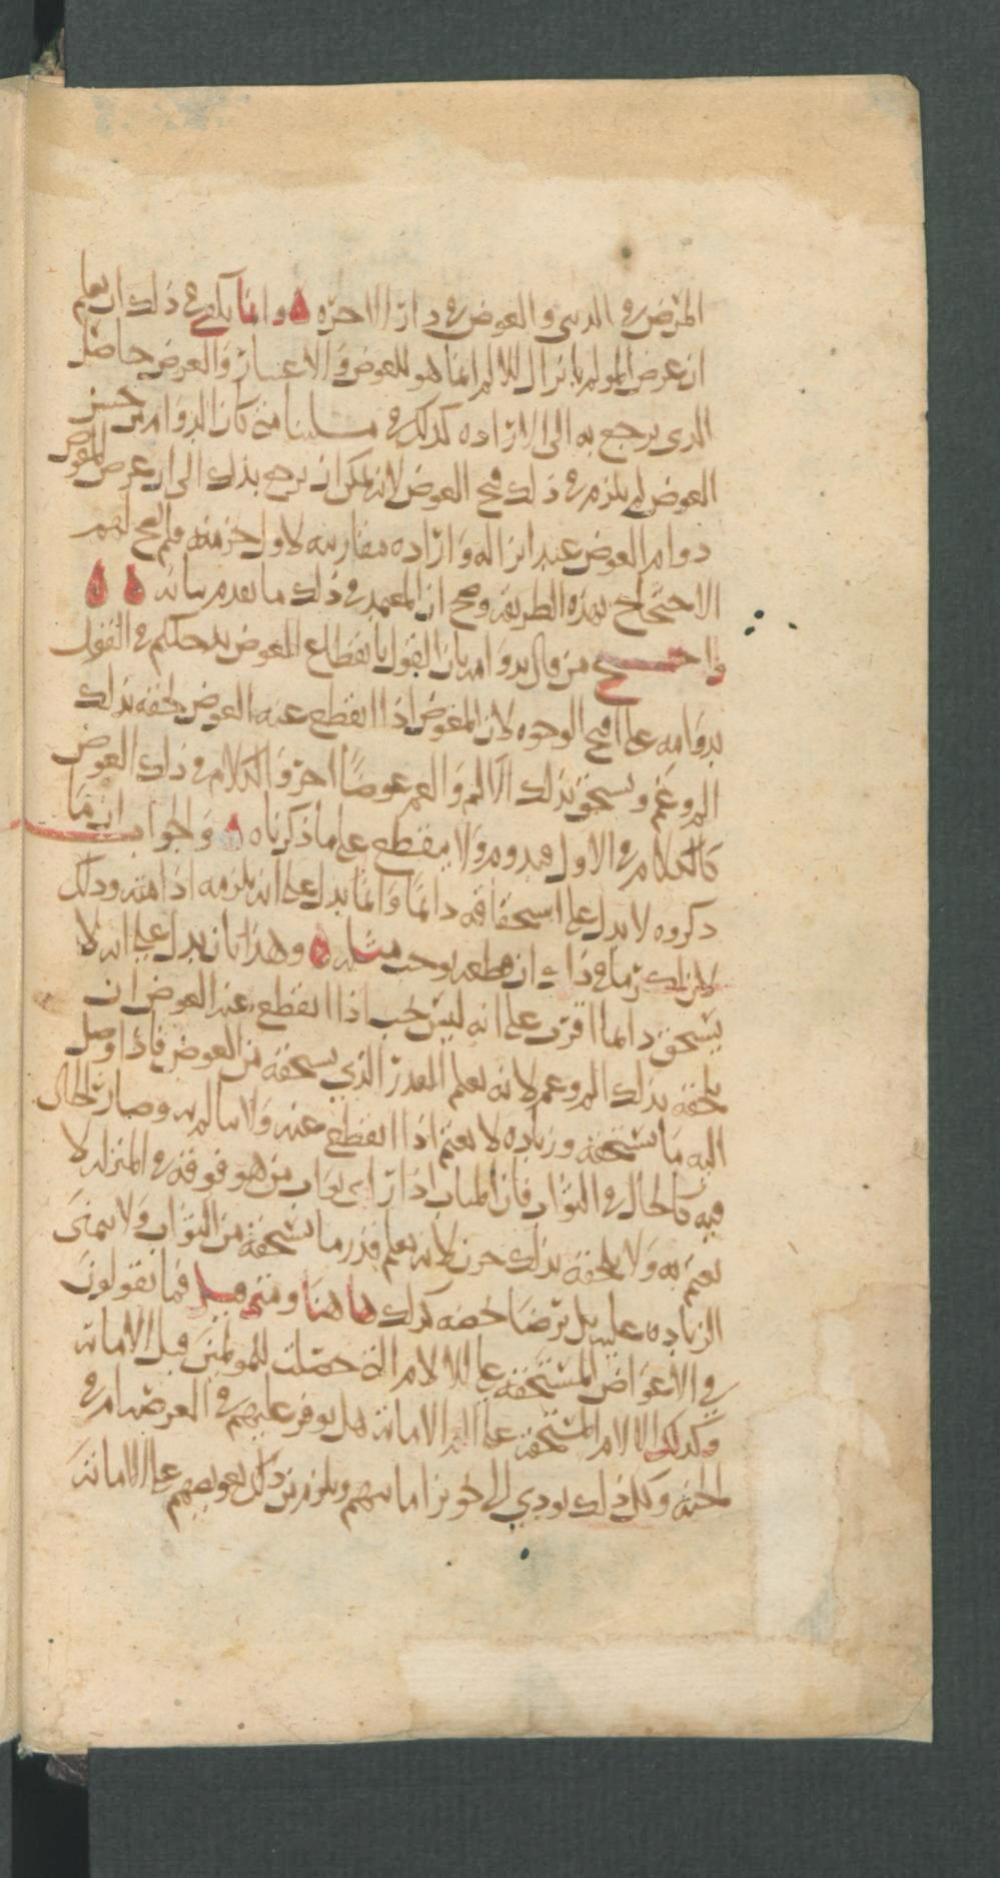 المرض في الدنيى والعوض في دار الاخره ه وانما يكفى في ذلك ان يعلم
ان غرض المولم بانزال الالم انما هو للعوض والاعتبار والغرض حاصل
الدى يرجع به الى الاراده كدلك في مسلتنا متى كان الدوام من حسن
العوض لم يلزم في ذلك قبح العوض لانه يمكن ان يرجع بذلك الى ان غرض المعوض
دوام العوض عند انزاله وارادة مقارنته لاول جزء منه ولم يصح لهم
الاحتجاج بهذه الطريقه وصح ان المعتمد في ذلك ما تقدم بيانه ه ه
واحتج من قال بدوامه بان القول بانقطاع العوض يدخلكم في القول
بدوامه على اقبح الوجوه لان المعوض اذا انقطع عنه العوض لحقه بذلك
الم وغم ويستحق بذلك الالم والغم عوضا اخر والكلام في ذلك العوض
كالكلام في الاول فيدوم ولا ينقطع على ما ذكرناه ه والجواب ان ما
ذكروه لا يدل على استحقاقه دائما وانما يدل على انه يلزمه ادامته وذلك
لان ذلك ان قطعه يوجب مثله ه وهذا بان يدل على انه لا
يستحق دائما اقرب على انه ليس يجب اذا انقطع عنه العوض ان
يلحقه بذلك الم وغم لانه يعلم القدر الذي يستحقه من العوض فاذا وصل
اليه ما يستحقه وزياده لا يغتم اذا انقطع عنه ولا يتالم به وصار الحال
فيه كالحال في الثواب فان المثاب اذا راى ثواب من هو فوقه في المنزله لا
يغتم به ولا يلحقه بذلك حزن لانه يعلم قدر ما يستحقه من الثواب ولا يتمنى
الزياده عليه بل يرضا بحقه كذلك ها هنا ومتى قيل فما تقولون
في الاعواض المستحقه على الالام التي حصلت للمولمين قبل الاماته
وكذلك الالام المستحقه على الم الاماته هل يوفر عليهم في العرض ام في
الجنه وكل ذلك يودي الى تجويز اماتتهم ويلزم من ذلك تعويضهم على الاماته